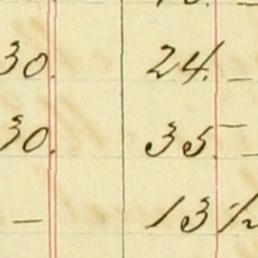 30. 24. –
30. 35. –
– 13 1/2